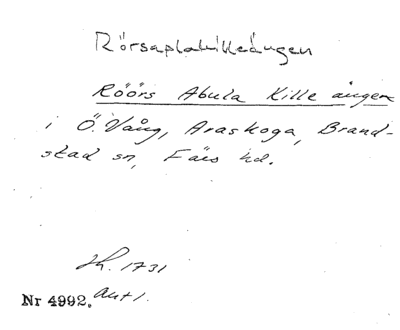 Rörsaplakilleängen
Röörs Abula Kille ången
i Ö. Vång, Araskoga, Brand-
stad sn, Färs hd.
Lh. 1731
Nr 4992. Akt 1.